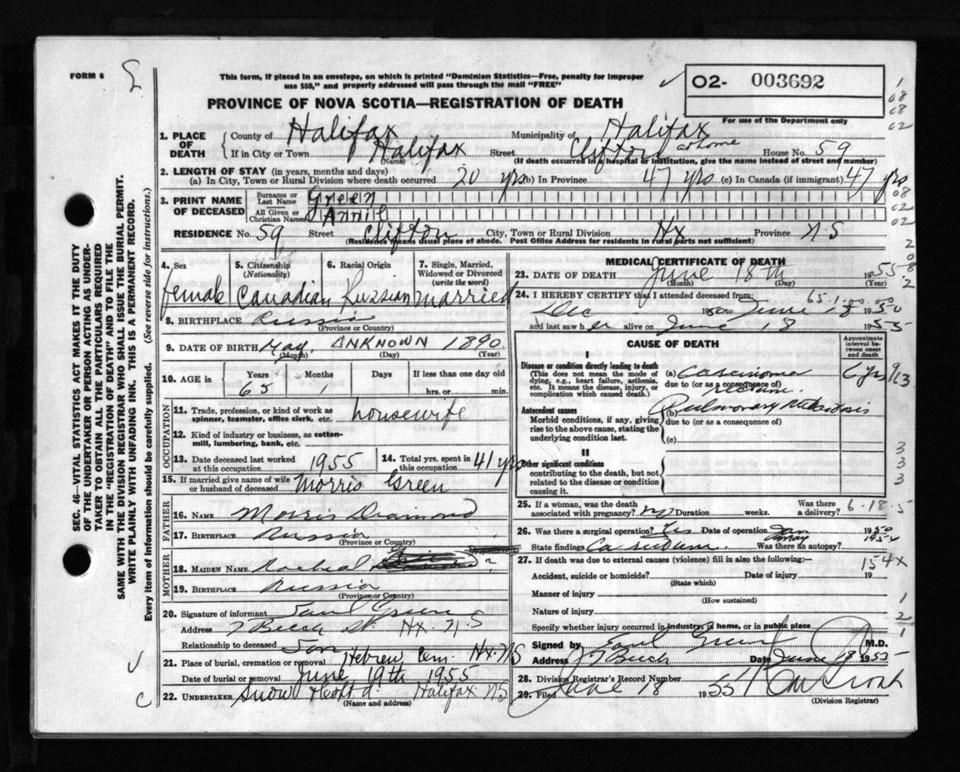 FORM 6
This form, if placed in an envelope, on which is printed "Dominion Statistics—Free, penalty for improper
use $50," and properly addressed will pass through the mail "FREE"
02- 003692
For use of the Department only
PROVINCE OF NOVA SCOTIA—REGISTRATION OF DEATH
SEC. 46—VITAL STATISTICS ACT MAKES IT THE DUTY
OF THE UNDERTAKER OR PERSON ACTING AS UNDER-
TAKER TO OBTAIN ALL THE PARTICULARS REQUIRED
IN THE "REGISTRATION OF DEATH" AND TO FILE THE
SAME WITH THE DIVISION REGISTRAR WHO SHALL ISSUE THE BURIAL PERMIT.
WRITE PLAINLY WITH UNFADING INK. THIS IS A PERMANENT RECORD.
Every item of Information should be carefully supplied. (See reverse side for instructions.)
1. PLACE OF DEATH
County of Halifax Municipality of Halifax
If in City or Town Halifax (Name) Street Clifton at home House No. 59
(If death occurred in a hospital or institution, give the name instead of street and number)
2. LENGTH OF STAY (in years, months and days)
(a) In City, Town or Rural Division where death occurred 20 yrs (b) In Province 47 yrs (c) In Canada (if immigrant) 47 yrs
3. PRINT NAME OF DECEASED
Surname or Last Name Green
All Given or Christian Names Annie
RESIDENCE No. 59 Street Clifton City, Town or Rural Division Hx Province N S
(Residence means usual place of abode. Post Office Address for residents in rural parts not sufficient)
4. Sex female
5. Citizenship (Nationality) Canadian
6. Racial Origin Russian
7. Single, Married, Widowed or Divorced (write the word) married
8. BIRTHPLACE Russia
(Province or Country)
9. DATE OF BIRTH May UNKNOWN 1890
(Month) (Day) (Year)
10. AGE in Years Months Days If less than one day old
65 1 hrs. or min.
OCCUPATION
11. Trade, profession, or kind of work as spinner, teamster, office clerk, etc. housewife
12. Kind of industry or business, as cotton-mill, lumbering, bank, etc.
13. Date deceased last worked at this occupation 1955
14. Total yrs. spent in this occupation 41 yrs
15. If married give name of wife or husband of deceased Morris Green
FATHER
16. NAME Morris Diamond
17. BIRTHPLACE Russia
(Province or Country)
MOTHER
18. MAIDEN NAME Racheal ?
19. BIRTHPLACE Russia
(Province or Country)
20. Signature of informant Saul Green
Address 7 Beech St Hx. N.S
Relationship to deceased Son
21. Place of burial, cremation or removal Hebrew Cem. Hx. NS
Date of burial or removal June 19th 1955
22. UNDERTAKER Snow & Co Ltd. Halifax NS
(Name and address)
MEDICAL CERTIFICATE OF DEATH
23. DATE OF DEATH June 18th 1955
(Month) (Day)
24. I HEREBY CERTIFY that I attended deceased from
Dec 1950 to June 18 1955
and last saw her alive on June 18 1955
CAUSE OF DEATH
Approximate interval between onset and death
I
Disease or condition directly leading to death
(This does not mean the mode of dying, e.g., heart failure, asthenia, etc. It means the disease, injury, or complication which caused death.)
(a) Carcinoma
due to (or as a consequence of) rectum
6 yrs
Antecedent causes
Morbid conditions, if any, giving rise to the above cause, stating the underlying condition last.
(b) Pulmonary Metastasis
due to (or as a consequence of)
(c)
II
Other significant conditions
contributing to the death, but not related to the disease or condition causing it.
25. If a woman, was the death associated with pregnancy? no Duration weeks. Was there a delivery?
6-18-5
26. Was there a surgical operation? Yes Date of operation Jan 1950
May
State findings Ca rectum. Was there an autopsy?
27. If death was due to external causes (violence) fill in also the following:—
154X
Accident, suicide or homicide? Date of injury 19
(State which)
Manner of injury
(How sustained)
Nature of injury
Specify whether injury occurred in industry, in home, or in public place
Signed by Earl Green M.D.
Address 7 Beech Date June 19 1955
28. Division Registrar's Record Number
29. Filed June 18 1955
(Division Registrar)